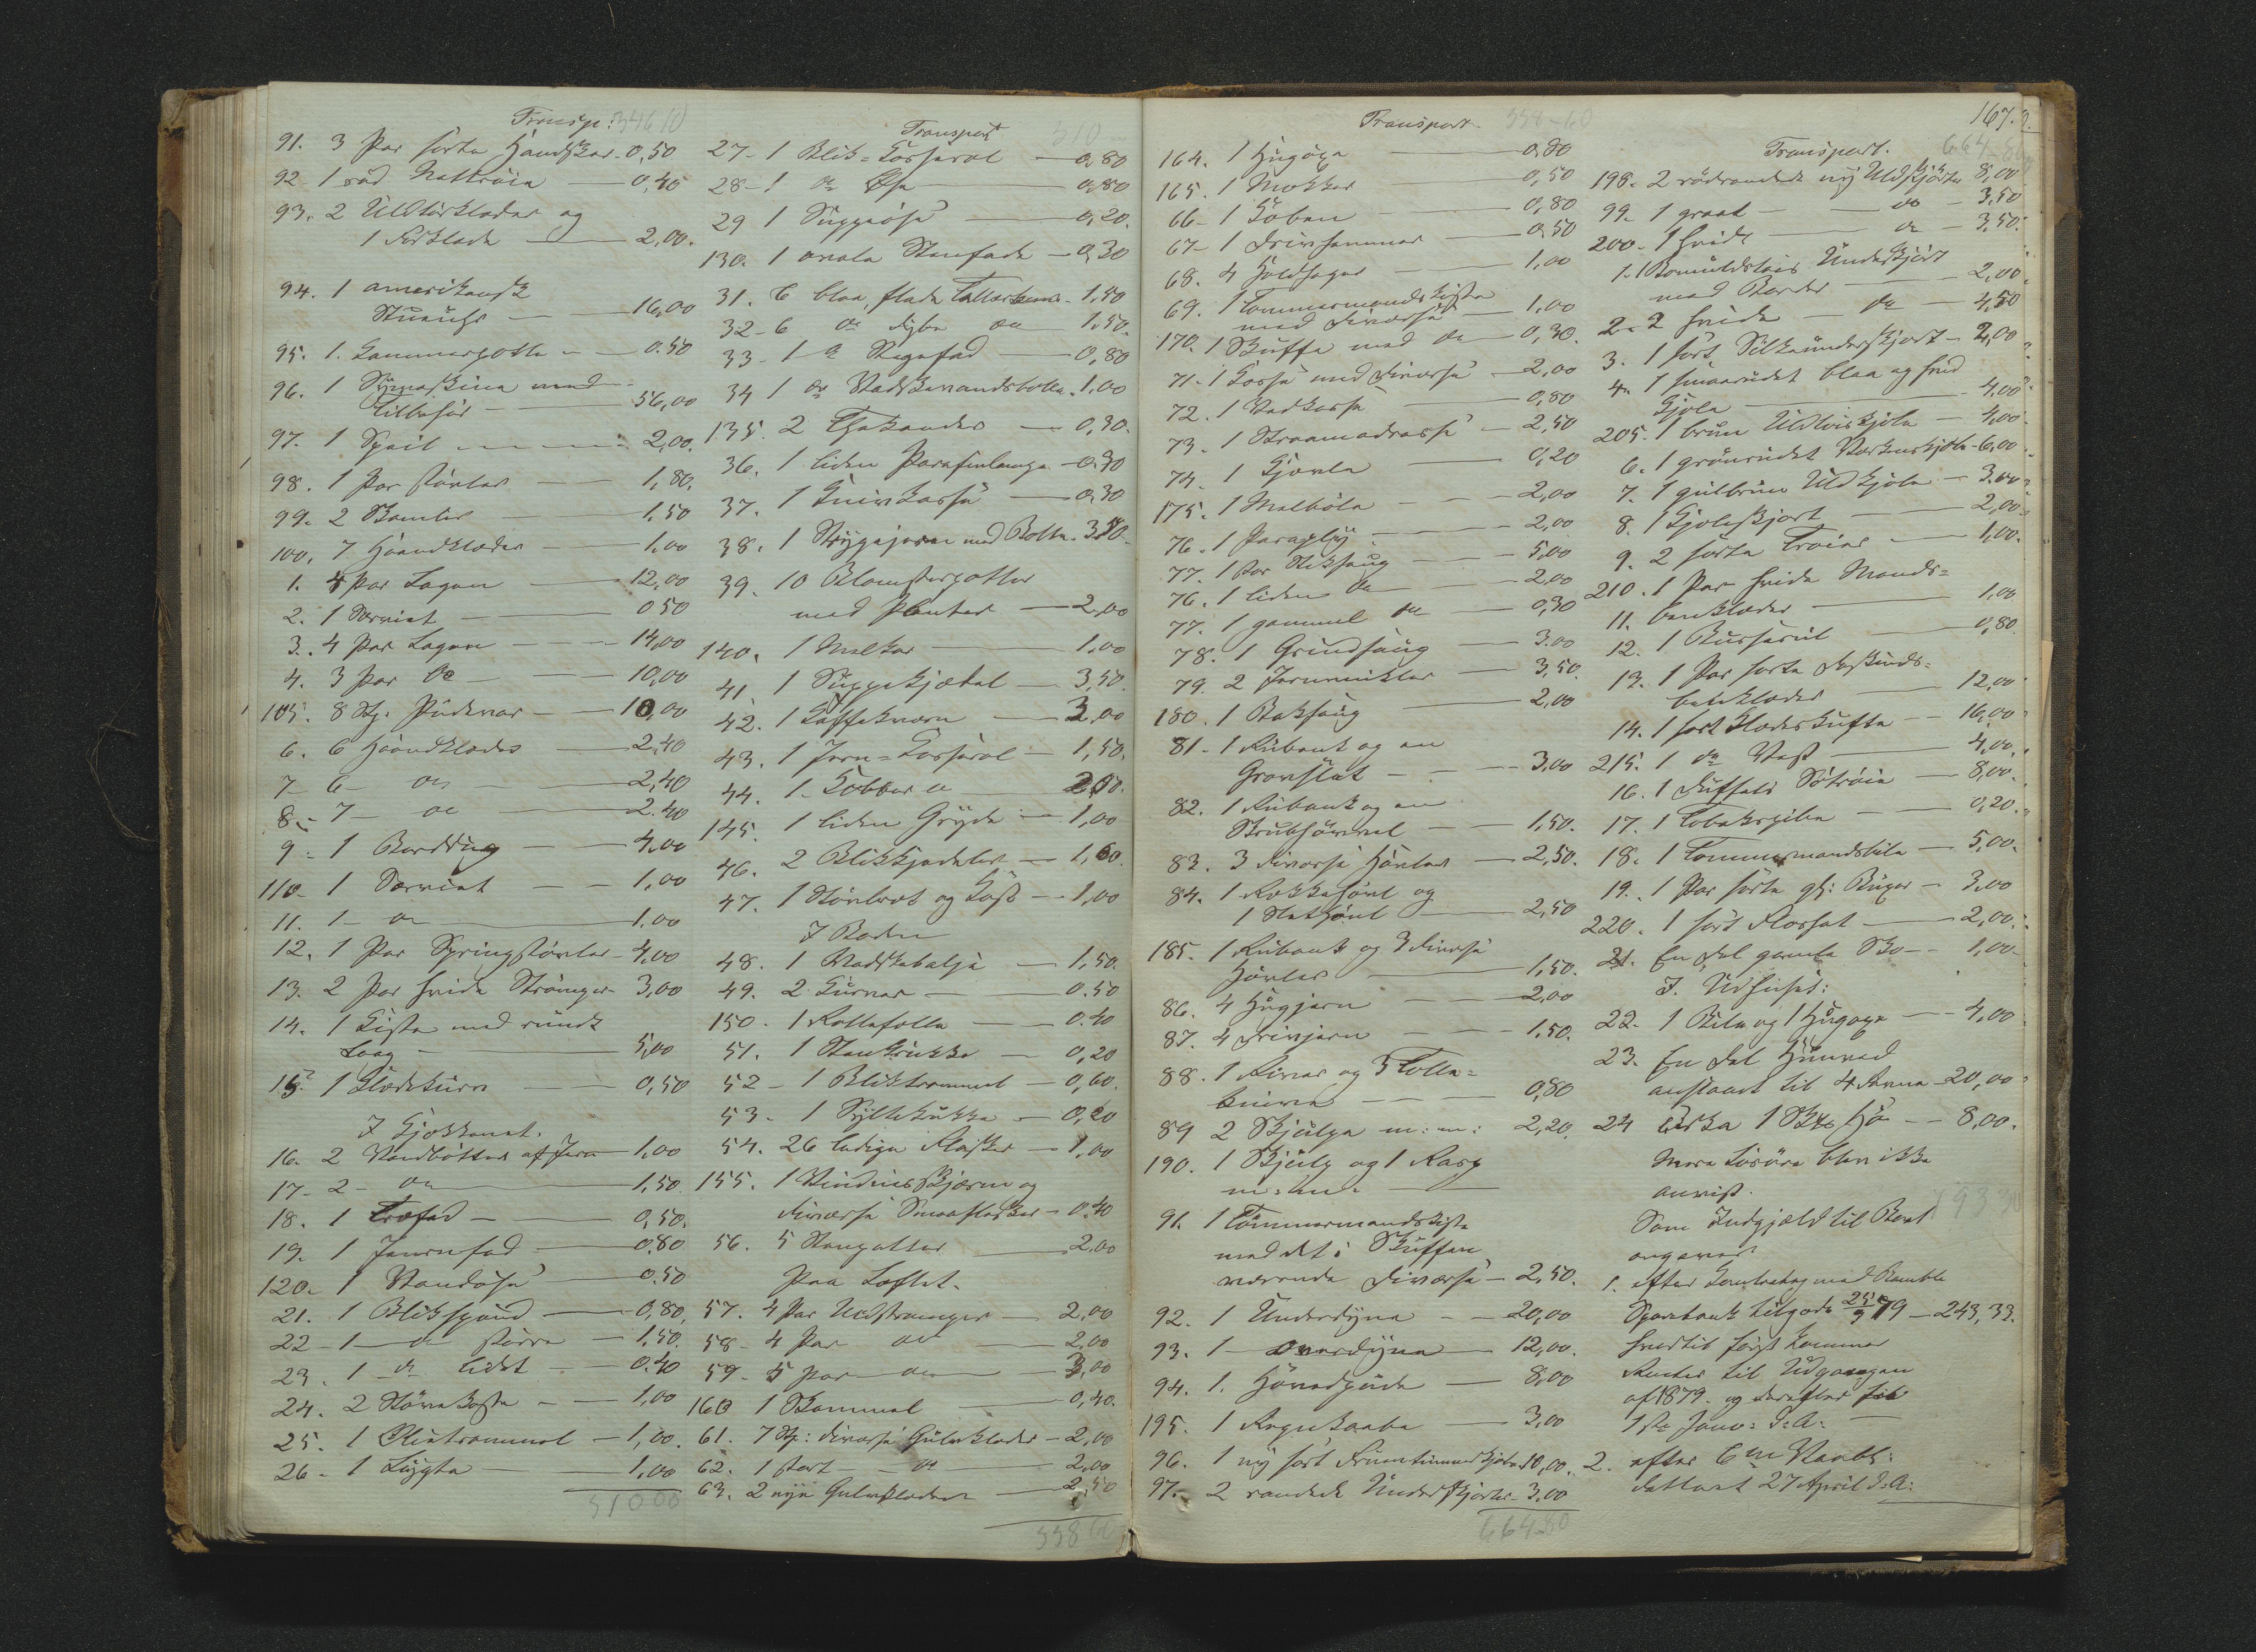 Transp: 346 10
91. 3 Par sorte Handsker - 0,50
92 1 rød Nattrøie — 0,40
93. 2 Uldtørklæder og
1 Forklæde — 2,00.
94. 1 amerikansk
Stueuhr — 16,00
95. 1. Kammerpotte — 0.50
96. 1 Symaskine med
Tilbehør — 56,00
97. 1 Speil — 2,00.
98. 1 Par støvler — 1,80.
99. 2 Skamler — 1,50
100. 7 Haandklæder — 1,00
1. 4 Par Lagen — 12,00
2. 1 Serviet — 0 50
3. 4 Par Lagen — 14,00
4. 3 Par do — 10,00
105. 8 Stk. Pudevar — 10,00
6. 6 Haandklæder — 2,40
7 - 6 - do — 2,40
8 - 7 - do — 2.40
9 - 1 Borddug — 4,00
110 - 1 Serviet — 1,00
11. 1 - do — 1,00
12. 1 Par Springstøvler - 4,00
13. 2 Par hvide Strømper - 3,00
14. 1 Kiste med rundt
Laag — 5,00
15. 1 Klædekurv — 0,50
I Kjøkkenet.
16. 2 Vandbøtter af Jern — 1,00
17 - 2 - do — 1,50
18. 1 Træfad — 0,50.
19. 1 Jernfad — 0,80
120. 1 Vandøse — 0.50
21. 1 Blikspand — 0,80
22 - 1 - do større — 1,50
23. 1 do lidet — 0.40
24. 2 Støvekoste — 1,00
25. 1 Bliktrommel — 1,00.
26 - 1 Lygte — 1,00
510 00
Transport 510
27 - 1 Blik-Kasserol — 0,80
28 - 1 do Øse — 0,80
29 1 Suppeøse — 0,20.
130. 1 ovale Stenfade — 0,30
31. 6 blaa, flade Tallerkener - 1,50
32 - 6 do dybe do 1,50.
33 - 1 do Stegefad — 0,80
34 1 do Vadskevandsbolle - 1,00
135. 2 Thekander — 0,30.
36. 1 liden Parafinlampe — 0,30
37. 1 Knivkasse — 0,30
38. 1 Strygejern med Bolte -
39. 10 Blomsterpotter
med Planter — 2,00
140. 1 Melkar — 1,00
41. 1 Suppekjedel — 3,50.
42. 1 Kaffekværn — 3,00
43. 1 Jern-Kasserol — 1,50.
44. 1 Kobber do —
145. 1 liden Gryde — 1,00
46. 2 Blikkjedeler — 1,60.
47. 1 Støvbræt og Kost — 1,00
I Boden
48. 1 Vadskebalje — 1,50.
49. 2 Kurver — 0.50
150. 1 Rullefolle — 0.40
51. 1 Stenkrukke — 0,20
52 - 1 Bliktrommel — 0,60.
53 - 1 Syltekrukke — 0,20
54. 26 ledige Flasker — 1,00
155. 1 Vinduesskjærm og
diverse Smaaflasker - 0.40
56. 5 Stenpotter — 2,00
Paa Loftet.
57. 4 Par Uldstrømper — 2,00
58 - 4 Par do — 2,00
59 - 5 Par do — 3,00
160 1 Skammel — 0,40.
61. 7 Stk: diverse Gulvklæder - 2,00
62. 1 stort - do — 2,00
63. 2 nye Gulvklæder — 2,50
558 60
Transport 558-60
164. 1 Hugøxe — 0,80
165. 1 Mokker — 0,50
66 - 1 Koben — 0,80
67 - 1 Drivhammer — 0,50
68. 4 Holdhager — 1,00
69. 1 Tømmermandskiste
med Diverse — 1,00
170. 1 Skuffe med do — 0,30.
71. 1 Kasse med Diverse — 2,00
72. 1 Vedkasse — 0,80
73. 1 Straamadrasse — 2,50
74. 1 Kjævle — 0,20
175. 1 Malbøle — 2,00
76. 1 Paraply — 2,00
77. 1 stor Stiksaug — 5,00
76. 1 liden do — 2,00
77. 1 gammel do — 0,30
78. 1 Grindsaug — 3.00
79. 2 Jernvinkler — 3,50.
180. 1 Baksaug — 2,00
81. 1 Rubank og en
Gronslet — 3,00
82. 1 Rubank og en
Skrubhøvel — 1,50.
83. 3 diverse Høvler — 2,50.
84. 1 Rækkehøvl og
1 Slethøvl — 2,50
185. 1 Rubank og 3 diverse
Høvler — 1,50.
86. 4 Hugjern — 2,00
87. 4 Drivjern — 1,50.
88. 1 River og 5 Tolle-
knive — 0,80
89 2 Skjulpe m: m: 2,20.
190. 1 Skjulp og 1 Rasp
m: m: —
91. 1 Tømmermandskiste
med det i Skuffen
værende Diverse — 2,50.
92. 1 Underdyne — 20,00
93. 1 — Overdyne — 12,00.
94. 1. Hovedpude — 8,00
195. 1 Regnkaabe — 3,00
96. 1 ny sort Fruentimmerkjole 10,00.
97. 2 randede Underskjorter - 3,00
664-80
167.
Transport. 664-80
198. 2 rødrandede ny Uldskjorter 8,00
99. 1 graat — do — 3,50
200 - 1 hvidt — do — 3,50.
1. 1 Bomuldstøis Underskjørt
med Border — 2,00
2. 2 hvide — do — 4,50
3. 1 sort Silkeunderskjørt — 2,00
4. 1 smaarudet blaa og hvid
Kjole — 4,00
205. 1 brun Uldtøiskjole — 4,00
6. 1 grønrudet Værkenskjole - 6,00
7. 1 gulbrun Uldkjole — 3.00
8. 1 Kjoleskjørt — 2,00
9. 2 sorte Trøier — 1,00.
210. 1 Par hvide Mands-
11. benklæder — 1,00
12. 1 Busserul — 0,80.
13. 1 Par sorte Dyskinds-
benklæder — 12,00
14. 1 sort Klædeskufte — 16,00
215. 1 do Vest — 4,00.
16. 1 Duffels Søtrøie — 8,00.
17. 1 Tobakspibe — 0,20.
18. 1 Tømmermandsbile — 5,00.
19. 1 Par sorte gl: Buxer — 3,00
220. 1 sort Florhat — 2,00.
21. En Del gamle Sko — 1,00
I Udhuset:
22. 1 Bile og 1 Hugøxe — 4,00
23. En Del Hunved
anslaaet til 4 Favne — 20,00
24 Cirka 1 Hø — 8,00.
Mere Løsøre blev ikke
anvist. 793 30
Som Indgjæld til Boet
angaves
1. efter Kontrabog med Bamble
Sparebank tilgode 25/9 79 — 243,33.
hvortil først kommer
Renter til Udgangen
af 1879. og derefter fra
1ste Janr: d:A: —
2. efter
dateret 27 April d:A: